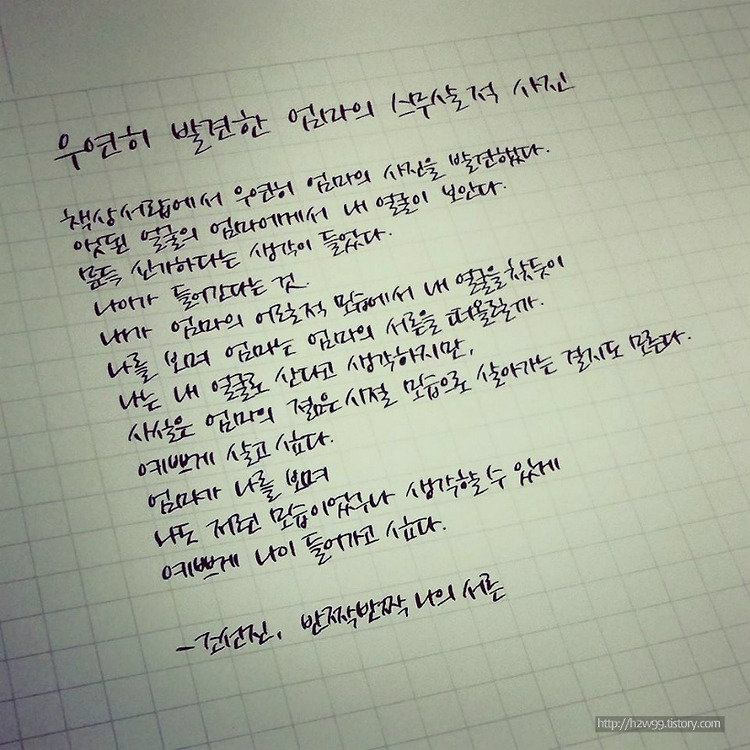 우연히 발견한 엄마의 스무살적 사진
책상서랍에서 우연히 엄마의 사진을 발견했다.
앳된 얼굴의 엄마에게서 내 얼굴이 보인다.
문득 신기하다는 생각이 들었다.
나이가 들어간다는 것.
내가 엄마의 어릴적 모습에서 내 얼굴을 찾듯이
나를 보며 엄마는 엄마의 서른을 떠올릴까.
나는 내 얼굴로 산다고 생각하지만,
사실은 엄마의 젊은시절 모습으로 살아가는 걸지도 모른다.
예쁘게 살고 싶다.
엄마가 나를 보며
나도 저런 모습이었구나 생각할 수 있게
예쁘게 나이 들어가고 싶다.
-조선진, 반짝반짝 나의 서른
http://h2w99.tistory.com